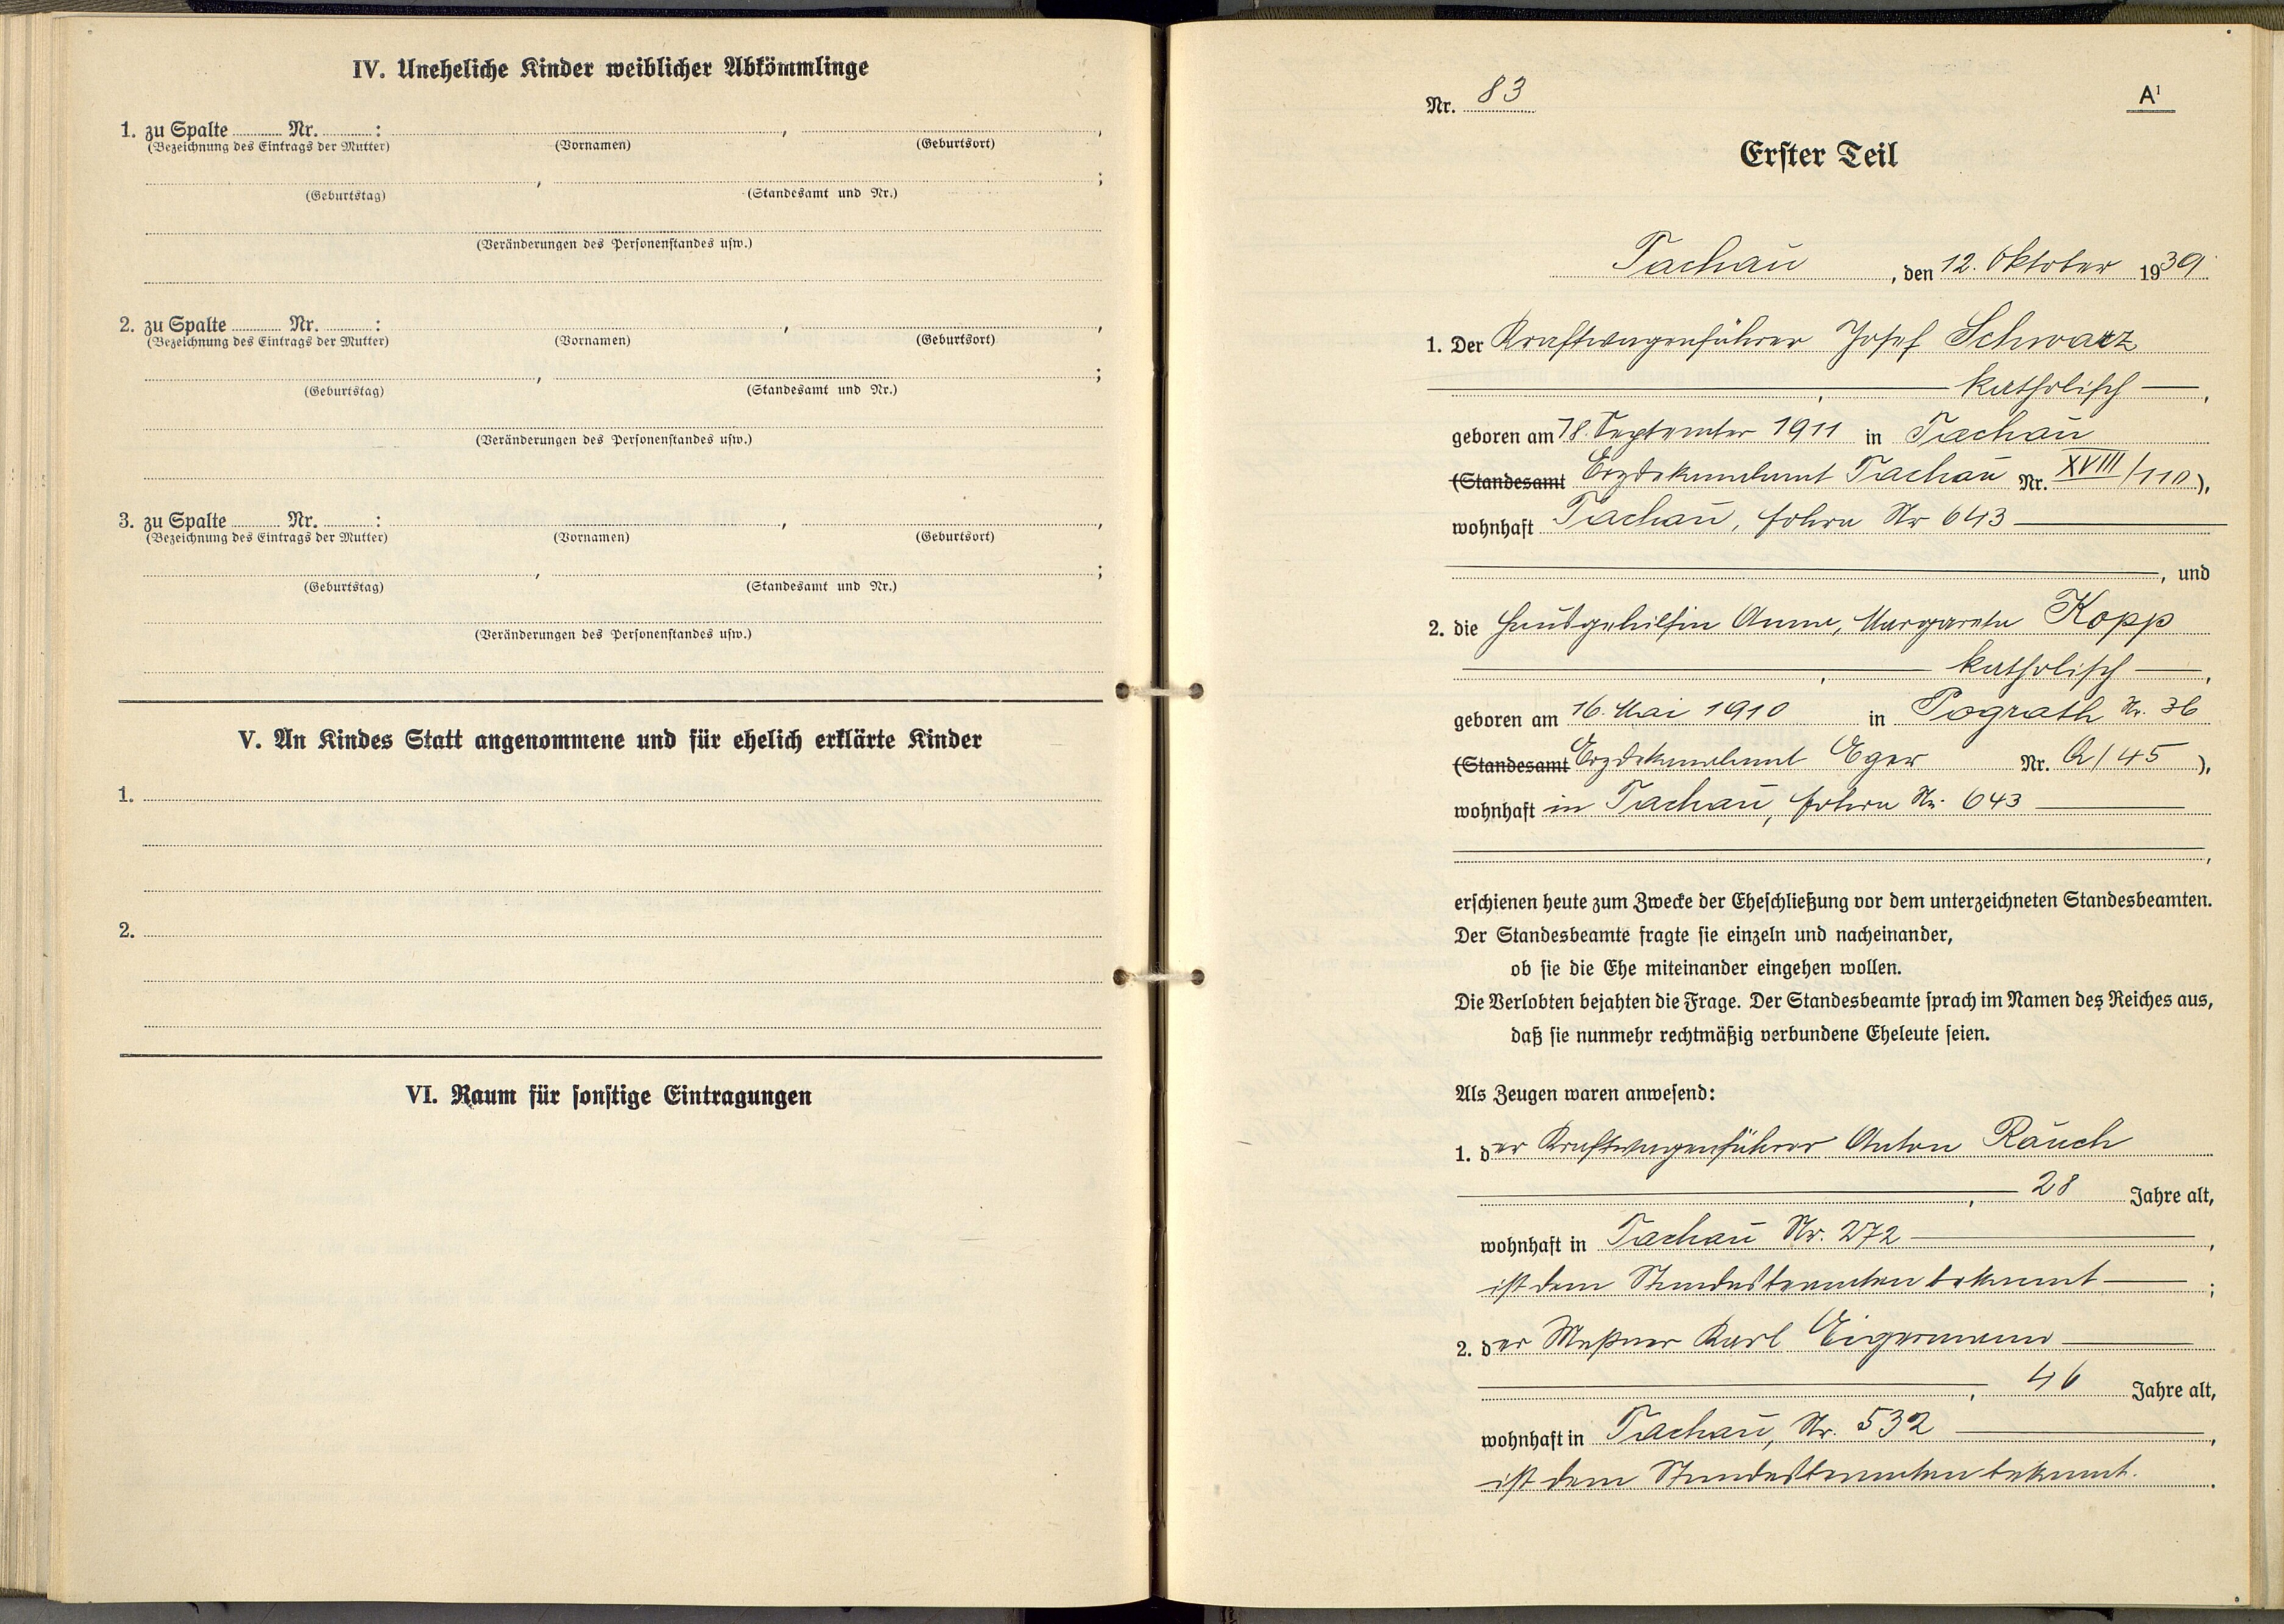 IV. Uneheliche Kinder weiblicher Abkömmlinge
1. zu Spalte ........ Nr. ........ : ........ , ........ ,
(Bezeichnung des Eintrags der Mutter) (Vornamen) (Geburtsort)
........ , ........ ;
(Geburtstag) (Standesamt und Nr.)
(Veränderungen des Personenstandes usw.)
2. zu Spalte ........ Nr. ........ : ........ , ........ ,
(Bezeichnung des Eintrags der Mutter) (Vornamen) (Geburtsort)
........ , ........ ;
(Geburtstag) (Standesamt und Nr.)
(Veränderungen des Personenstandes usw.)
3. zu Spalte ........ Nr. ........ : ........ , ........ ,
(Bezeichnung des Eintrags der Mutter) (Vornamen) (Geburtsort)
........ , ........ ;
(Geburtstag) (Standesamt und Nr.)
(Veränderungen des Personenstandes usw.)
V. An Kindes Statt angenommene und für ehelich erklärte Kinder
1.
2.
VI. Raum für sonstige Eintragungen
Nr. 83 A¹
Erster Teil
Tachau, den 12. Oktober 1939
1. Der Kraftwagenführer Josef Schwarz
, katholisch ,
geboren am 18. September 1911 in Tachau
(Standesamt Erzdekanalamt Tachau Nr. XVIII/110),
wohnhaft Tachau, Nr 643
, und
2. die Hausgehilfin Anna, Margareta Kopp
, katholisch ,
geboren am 16. Mai 1910 in Pograth Nr. 36
(Standesamt Erzdekanalamt Eger Nr. A/45 ),
wohnhaft in Tachau, Nr. 643
,
erschienen heute zum Zwecke der Eheschließung vor dem unterzeichneten Standesbeamten.
Der Standesbeamte fragte sie einzeln und nacheinander,
ob sie die Ehe miteinander eingehen wollen.
Die Verlobten bejahten die Frage. Der Standesbeamte sprach im Namen des Reiches aus,
daß sie nunmehr rechtmäßig verbundene Eheleute seien.
Als Zeugen waren anwesend:
1. der Kraftwagenführer Anton Rauch
, 28 Jahre alt,
wohnhaft in Tachau Nr. 272 ,
ist dem Standesbeamten bekannt ;
2. der Meßner Karl Eigermann
, 46 Jahre alt,
wohnhaft in Tachau, Nr. 532 ,
ist dem Standesbeamten bekannt.